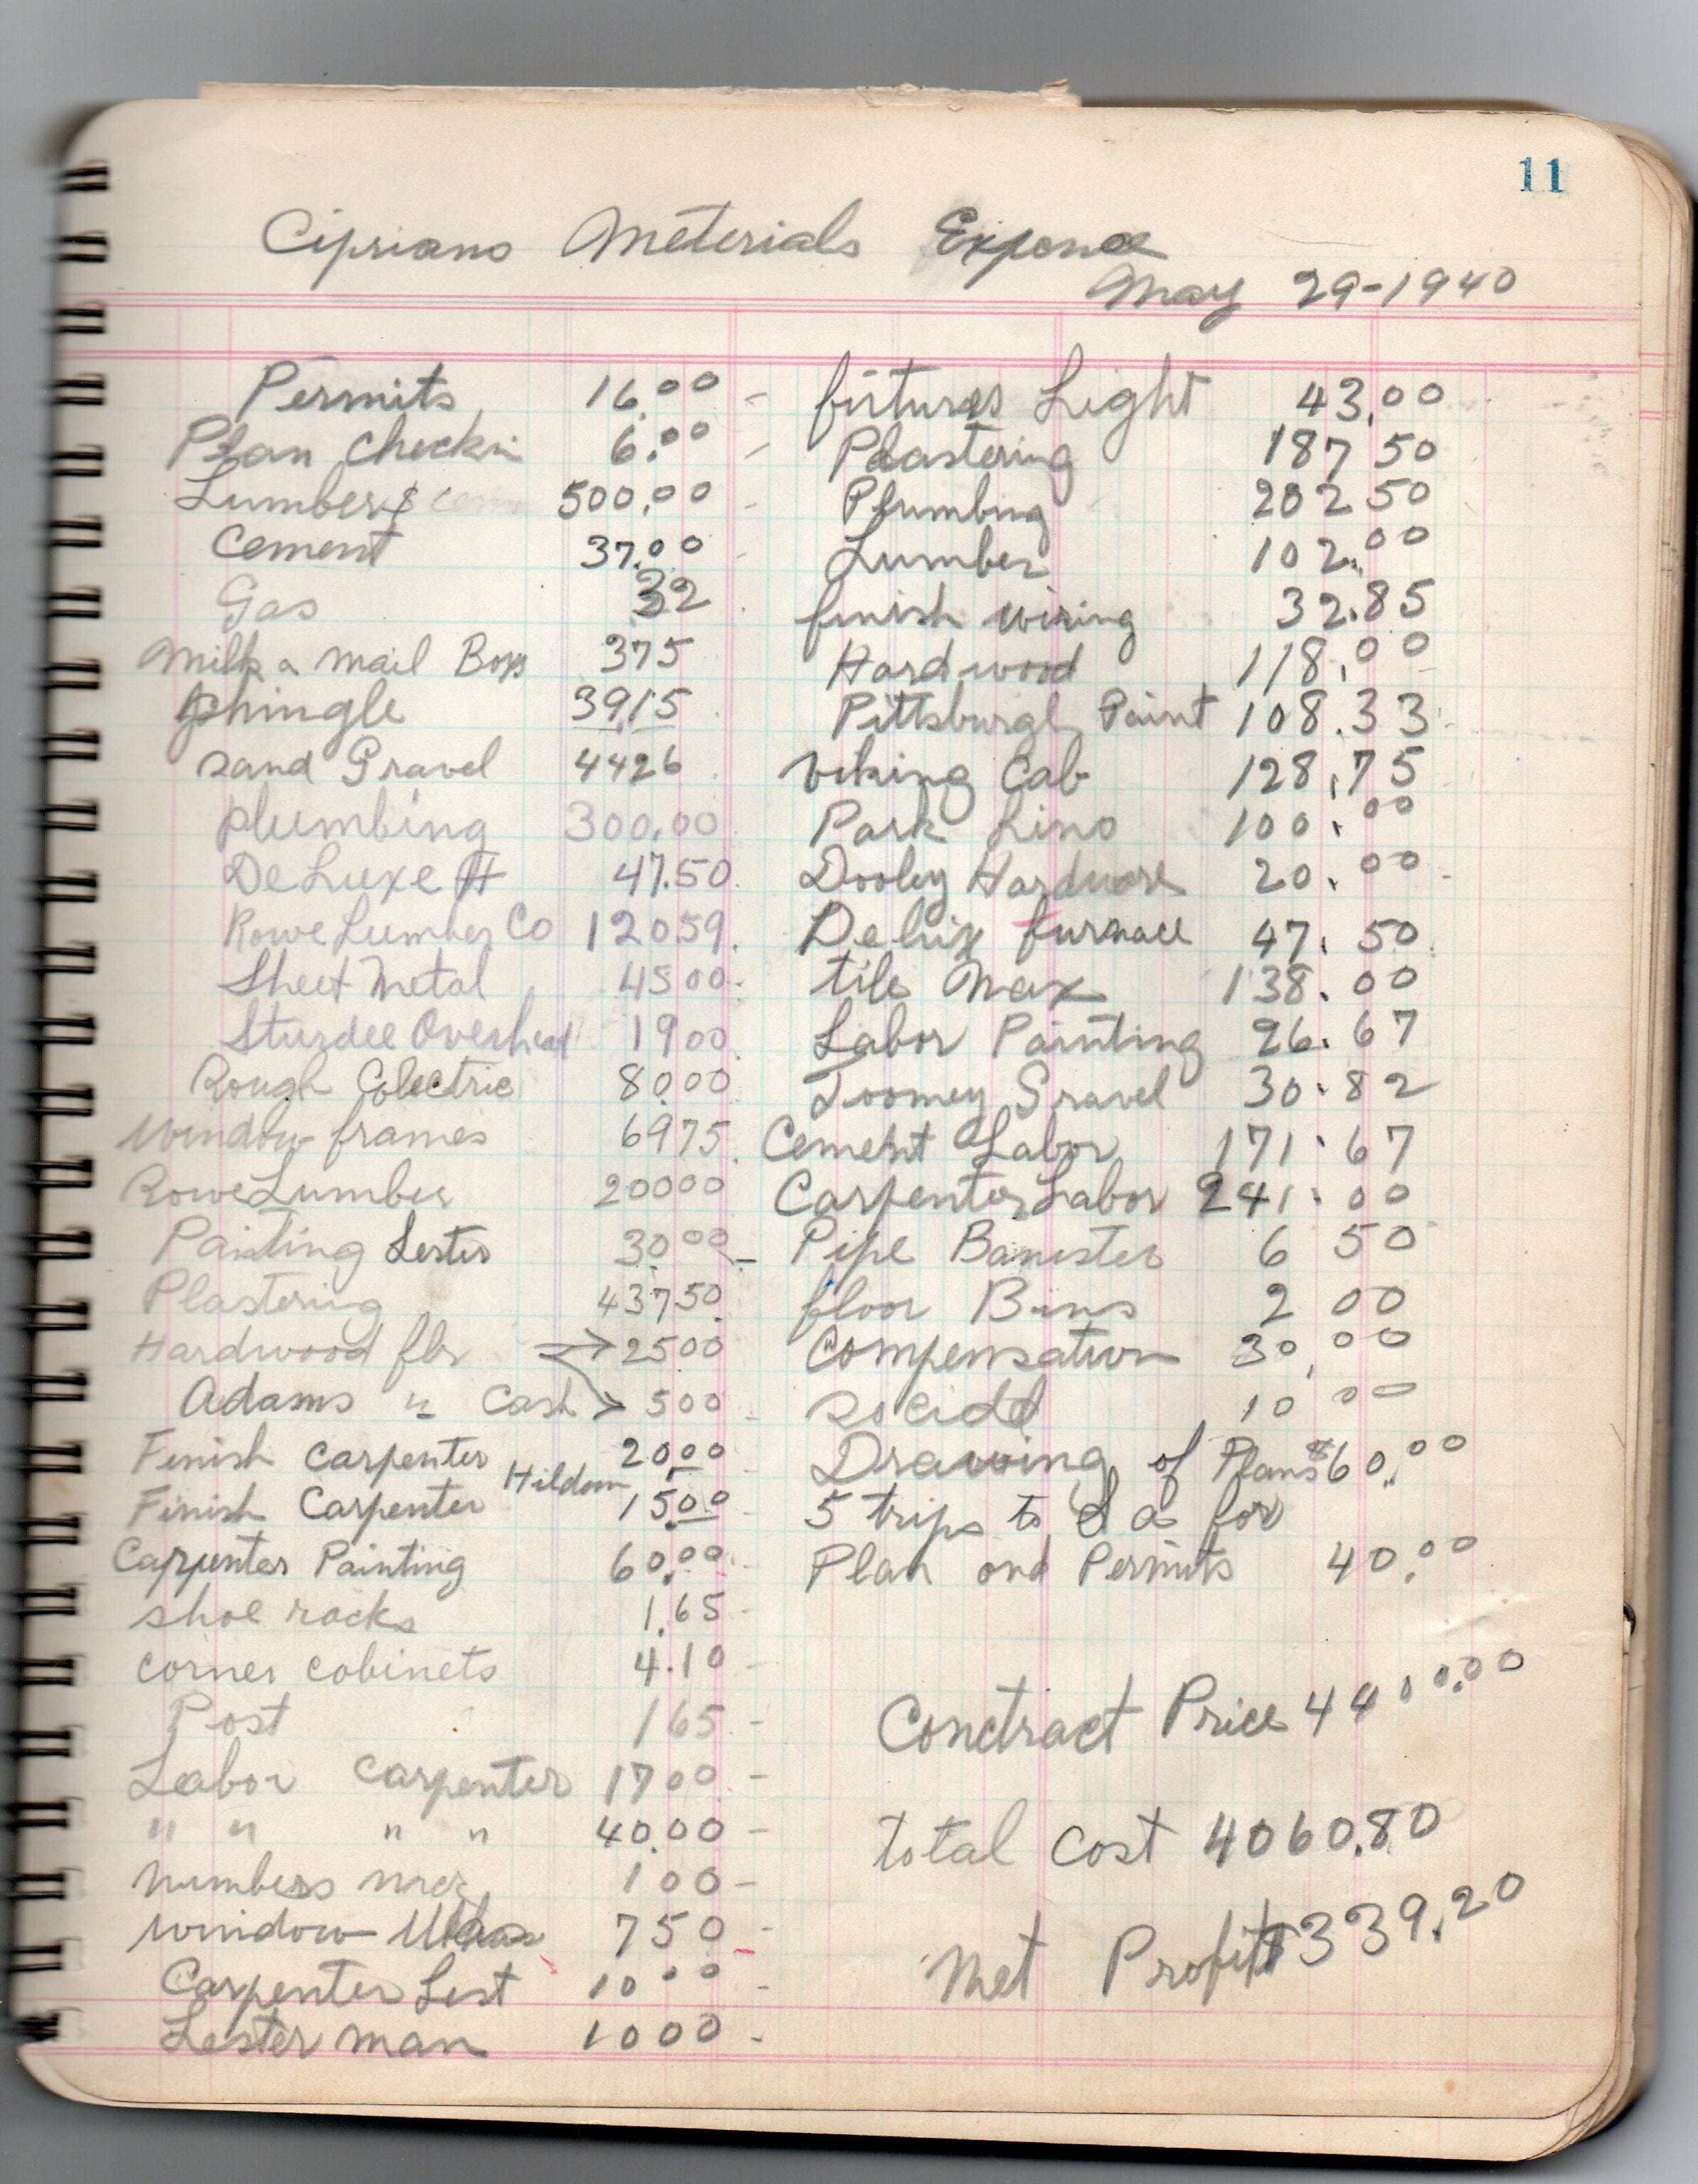 11
Cipriano Meterials Expense
May 29-1940
Permits 16.00 -
Plan Checkin 6.00 -
Lumber & 500.00 -
Cement 37.00 -
Gas 32
Milk a mail Boxs 375
Shingle 39.15
sand Gravel 4426
plumbing 300.00
DeLuxe H 47.50
Rowe Lumber Co 12059
Sheet Metal 4500
Sturdee Overhead 1900
Rough Electric 8000
window frames 6975
Rowe Lumber 20000
Painting Lester 30.00 -
Plastering 43750
Hardwood flr → 2500
Adams " Cash > 500 -
Finish Carpenter 20.00
Finish Carpenter Hildom 15.00 -
Carpenter Painting 60.00
shoe racks 1.65 -
corner cobinets 4.10 -
Post 165 -
Labor Carpenter 1700 -
" " " " 40.00 -
numbers 100 -
window 750 -
Carpenter Lest 1000 -
Lester man 1000 -
fixtures Light 43.00
Plastering 187 50
Plumbing 202 50
Lumber 102.00
finish wiring 32.85
Hardwood 118.00
Pittsburgh Paint 108.33
Viking Cab 128.75
Park Lino 100.00
Dooley Hardware 20.00
Delux furnace 47.50
tile Max 138.00
Labor Painting 26.67
Toomey Gravel 30.82
Cement Labor 171.67
Carpenter Labor 241.00
Pipe Banister 6 50
floor Bins 2 00
Compensation 30.00
10 00
Drawing of Plans $60.00
5 trips to L a for
Plan and Permits 40.00
Conctract Price 4400.00
total Cost 4060.80
Net Profit $339.20